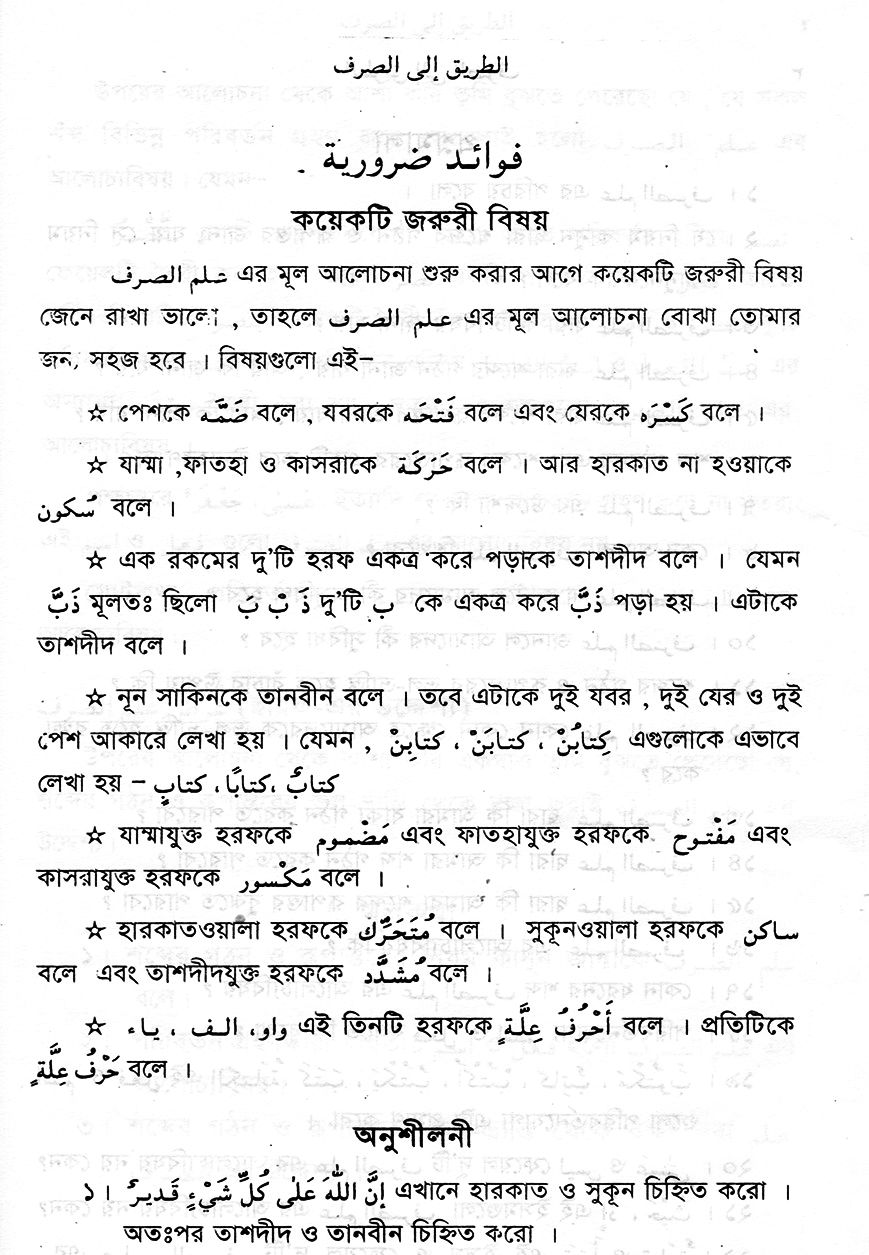 الطريق إلى الصرف
فوائد ضرورية
কয়েকটি জরুরী বিষয়
علم الصرف এর মূল আলোচনা শুরু করার আগে কয়েকটি জরুরী বিষয়
জেনে রাখা ভালো , তাহলে علم الصرف এর মূল আলোচনা বোঝা তোমার
জন্য সহজ হবে । বিষয়গুলো এই–
☆ পেশকে ضَمَّه বলে , যবরকে فَتْحَه বলে এবং যেরকে كَسْرَه বলে ।
☆ যাম্মা ,ফাতহা ও কাসরাকে حَرَكَة বলে । আর হারকাত না হওয়াকে
سُكون বলে ।
☆ এক রকমের দু'টি হরফ একত্র করে পড়াকে তাশদীদ বলে । যেমন
ذَبَّ মূলতঃ ছিলো ذَ بْ بَ দু'টি ب কে একত্র করে ذَبَّ পড়া হয় । এটাকে
তাশদীদ বলে ।
☆ নূন সাকিনকে তানবীন বলে । তবে এটাকে দুই যবর , দুই যের ও দুই
পেশ আকারে লেখা হয় । যেমন , كِتابُنْ ، كتابَنْ ، كتابِنْ এগুলোকে এভাবে
লেখা হয় – كتابٌ ،كتابًا، كتابٍ
☆ যাম্মাযুক্ত হরফকে مَضْموم এবং ফাতহাযুক্ত হরফকে مَفْتوح এবং
কাসরাযুক্ত হরফকে مَكْسور বলে ।
☆ হারকাতওয়ালা হরফকে مُتَحَرِّك বলে । সুকূনওয়ালা হরফকে ساكن
বলে এবং তাশদীদযুক্ত হরফকে مُشَدَّد বলে ।
☆ واو، الف ، ياء এই তিনটি হরফকে أَحْرُفُ عِلَّةٍ বলে । প্রতিটিকে
حَرْفُ عِلَّةٍ বলে ।
অনুশীলনী
১। إِنَّ اللهَ عَلى كُلِّ شَيْءٍ قَديرٌ এখানে হারকাত ও সুকূন চিহ্নিত করো ।
অতঃপর তাশদীদ ও তানবীন চিহ্নিত করো ।